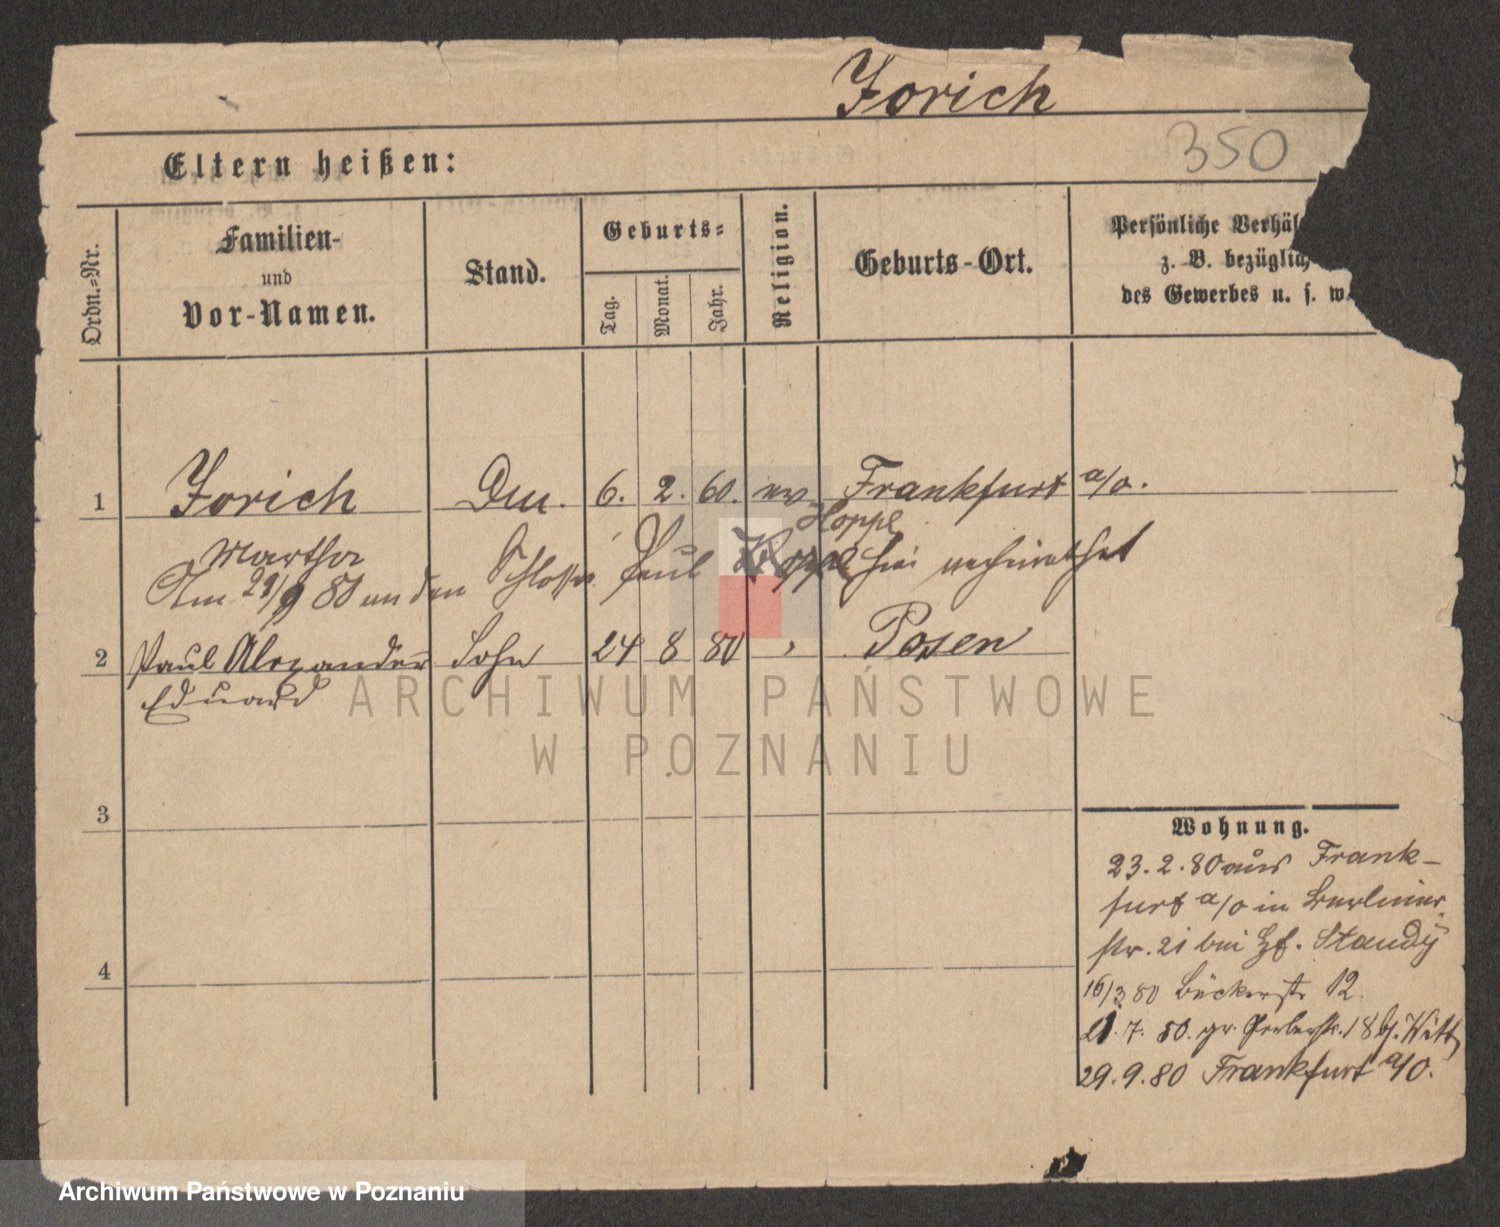 Jorich
350
Eltern heißen:
Ordn.-Nr.
Familien-
und
Vor-Namen.
Stand.
Geburts-
Tag.
Monat.
Jahr.
Religion.
Geburts-Ort.
Persönliche Verhäl
z. B. bezüglich
des Gewerbes u. s. w.
1 Jorich 6. 2. 60. ev Frankfurt a/O.
Martha
Hoppe
Am 29/9 80 an den Schlosser Paul Hoppe hier verheirathet
2 Paul Alexander Sohn 24 8 80 " Posen
Eduard
ARCHIWUM PAŃSTWOWE
W POZNANIU
3
4
Wohnung.
23. 2. 80 aus Frank-
furt a/O in Berliner
str. 21 bei Standy
16/3 80 Bäckerstr 12.
21. 7. 80. gr. Gerberstr. 18 b/. Witt
29. 9. 80 Frankfurt a/O.
Archiwum Państwowe w Poznaniu